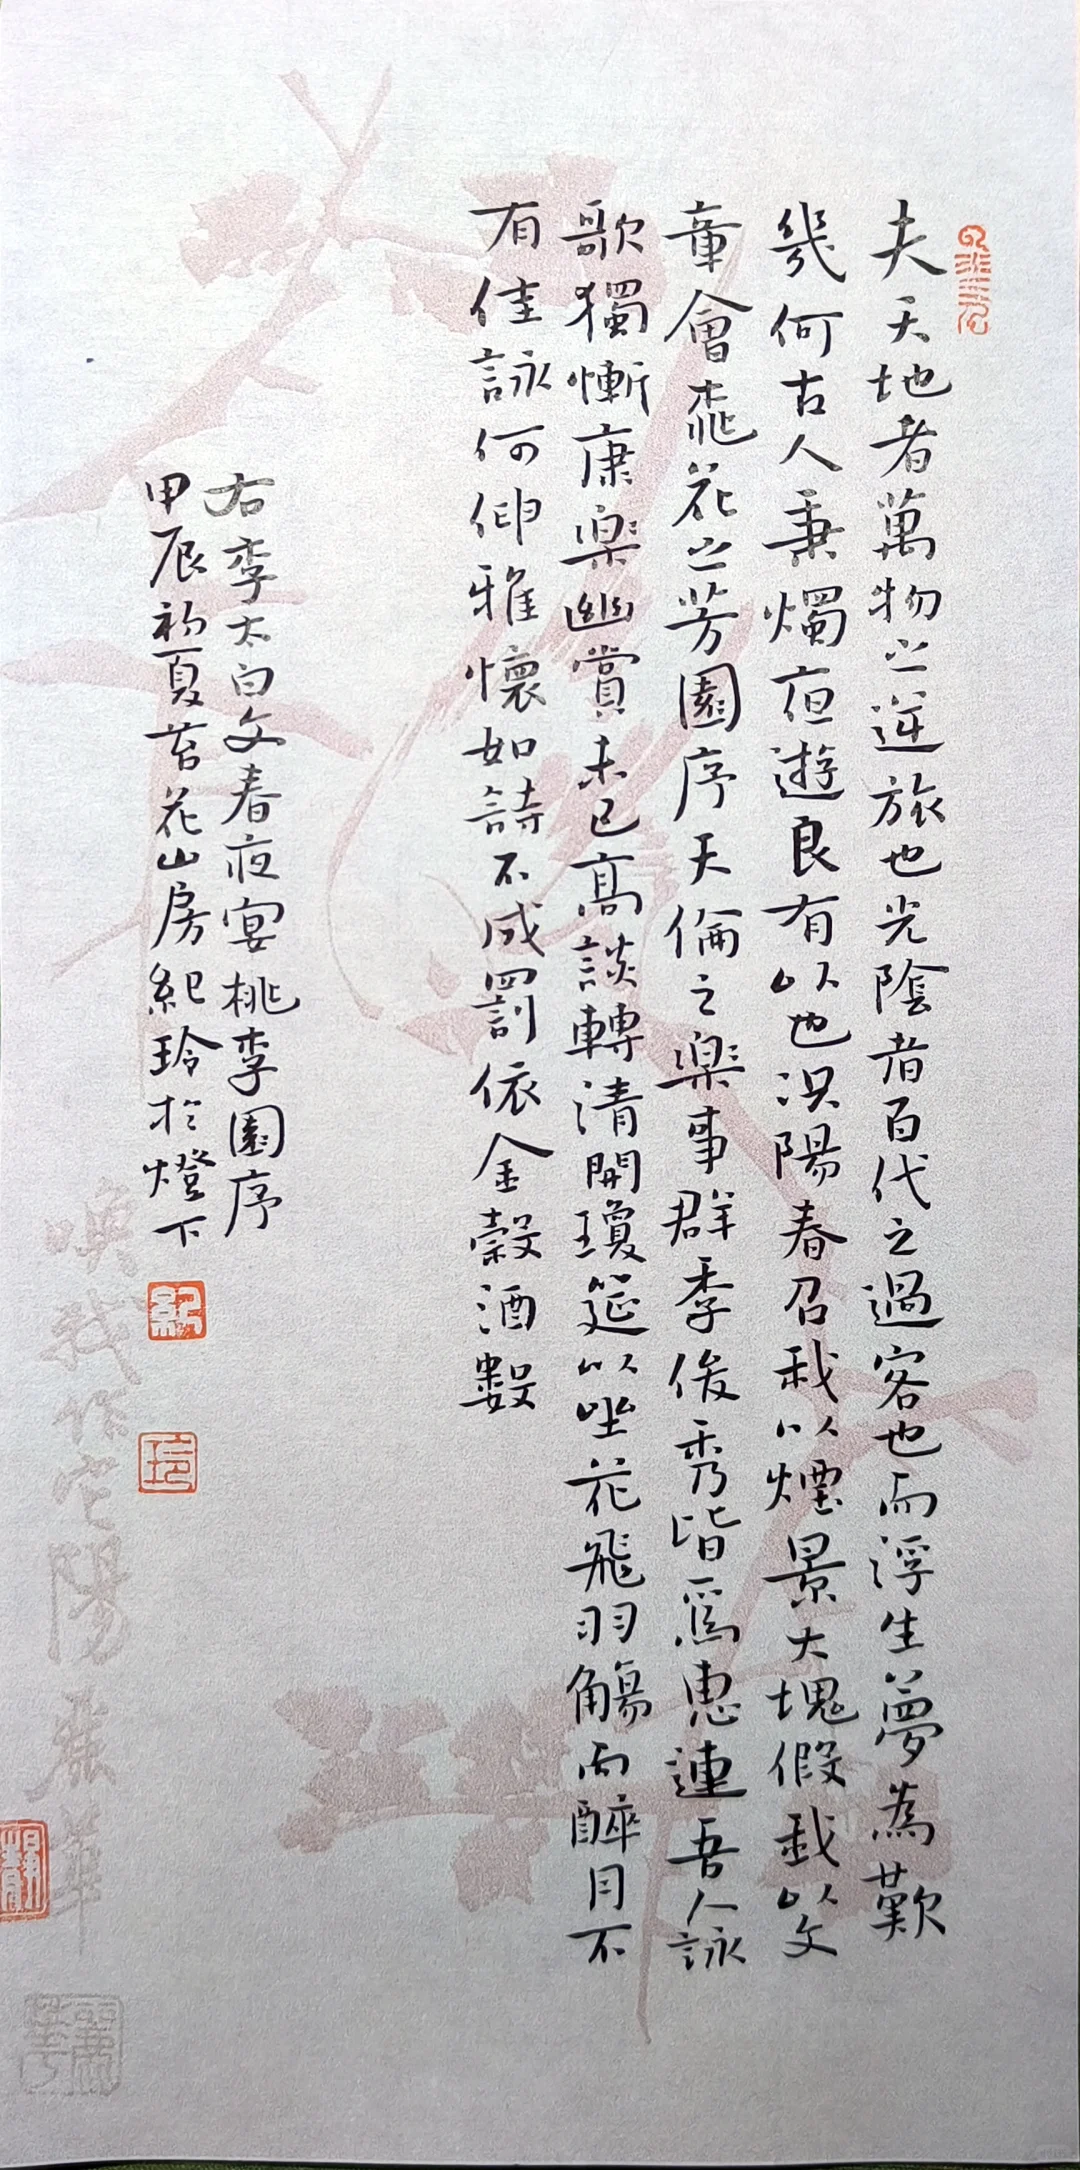 夫天地者萬物之逆旅也光陰者百代之過客也而浮生夢為歎
幾何古人秉燭夜遊良有以也況陽春召我以煙景大塊假我以文
章會桃花之芳園序天倫之樂事群季俊秀皆為惠連吾人詠
歌獨慚康樂幽賞未已高談轉清開瓊筵以坐花飛羽觴而醉月不
有佳詠何伸雅懷如詩不成罰依金穀酒數
右李太白文春夜宴桃李園序
甲辰初夏苔花山房紀玲於燈下
紀
玲